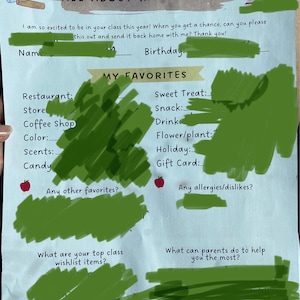 I am so excited to be in your class this year! When you get a chance, can you please
this out and send it back home with me? Thank you!
Birthday
MY FAVORITES
Restaurant:
Sweet Treat:
Store
Snack:
Coffee Shop
Drink
Color:
Flower/plant:
Scents:
Holiday:
Candy
Gift Card:
Any other favorites?
Any allergies/dislikes?
What are your top class
wishlist items?
What can parents do to help
you the most?